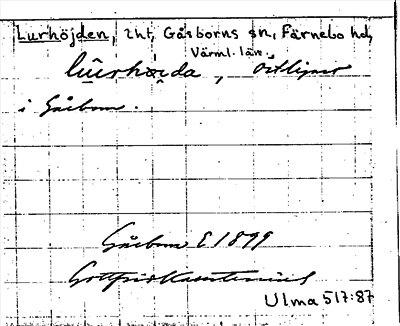 Lurhöjden, 2 ht, Gåsborns sn, Färnebo hd,
Värml. län.
lūrhöi̯da,
i Gåsborn.
Gåsborn E 1899
Gottfrid Kallstenius
Ulma 517:87